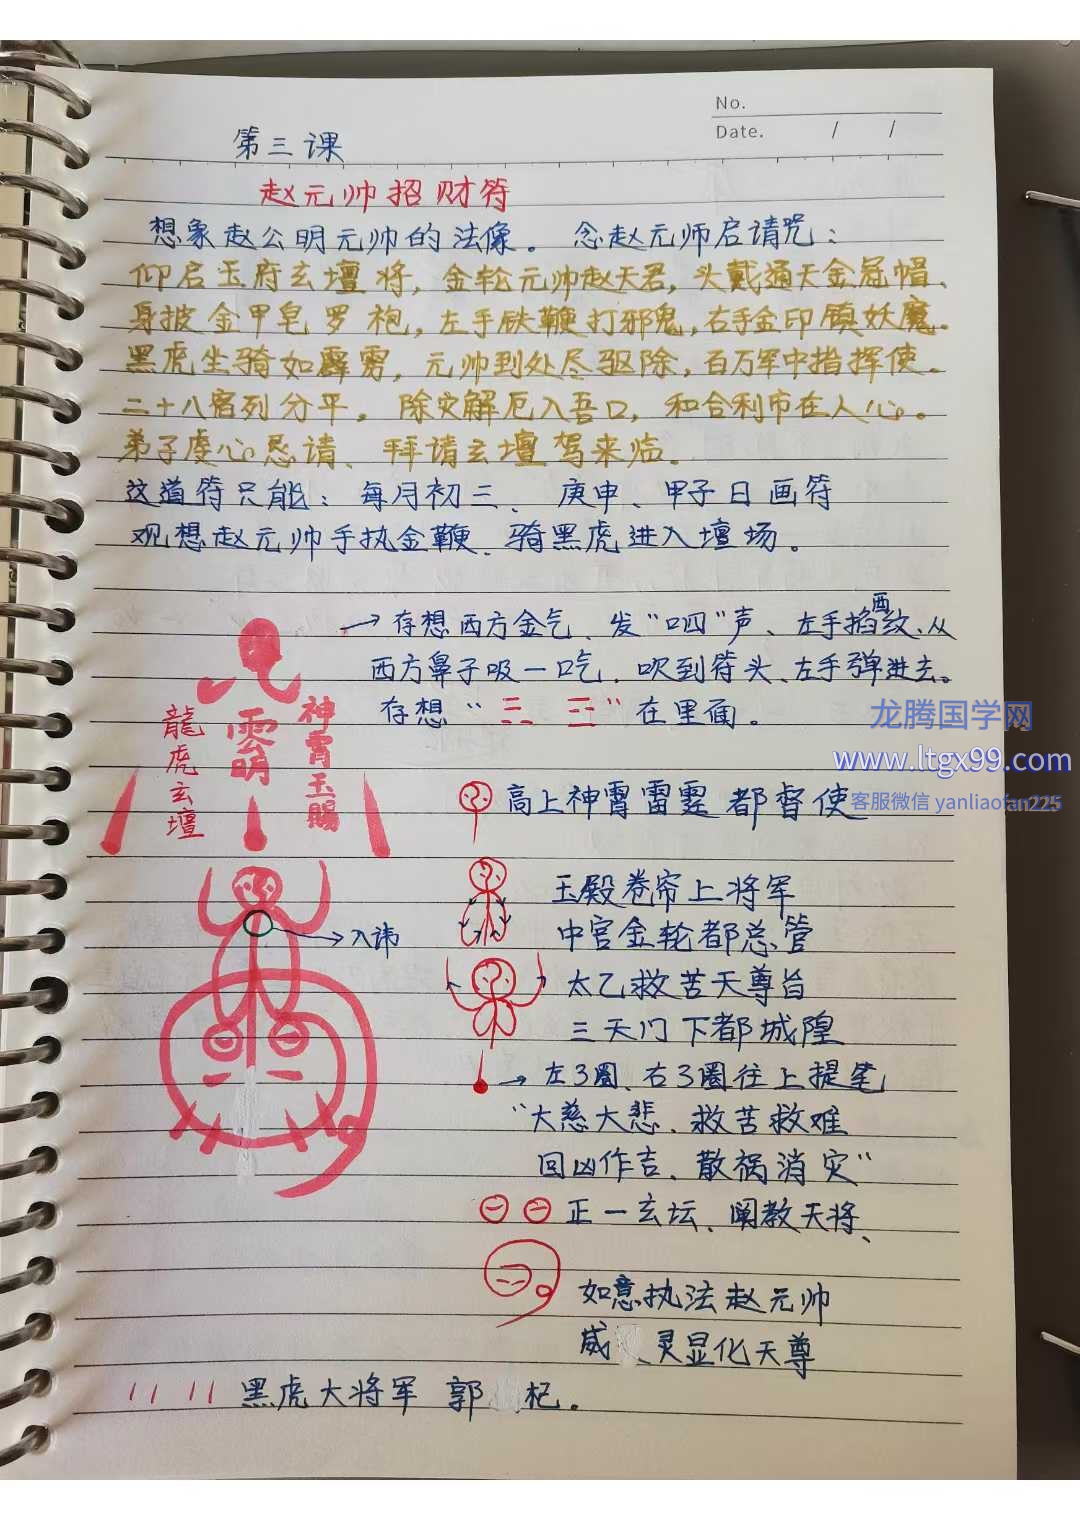 No.
Date. / /
第三课
赵元帅招财符
想象赵公明元帅的法像。 念赵元师启请咒：
仰启玉府玄壇将，金轮元帅赵天君，头戴通天金冠帽、
身披金甲皂罗袍，左手铁鞭打邪鬼，右手金印镇妖魔。
黑虎坐骑如霹雳，元帅到处尽驱除，百万军中指挥使。
二十八宿列分平。除灾解厄入吾口，和合利市在人心。
弟子虔心恳请、拜请玄壇驾来临。
这道符只能：每月初三、庚申、甲子日画符
观想赵元帅手执金鞭、骑黑虎进入壇场。
→存想西方金气、发“呬”声、左手掐酉纹、从
西方鼻子吸一口气、吹到符头、左手弹进去。
存想“三 三”在里面。
神霄玉賜
明
龍虎玄壇
龙腾国学网
www.ltgx99.com
客服微信 yanliaofan225
高上神霄雷霆都督使
玉殿卷帘上将军
中宫金轮都总管
入讳
太乙救苦天尊旨
三天门下都城隍
→左3圈、右3圈往上提笔
“大慈大悲、救苦救难
回凶作吉、散祸消灾”
正一玄坛、阐教天将、
如意执法赵元帅
威灵显化天尊
黑虎大将军 郭杞。